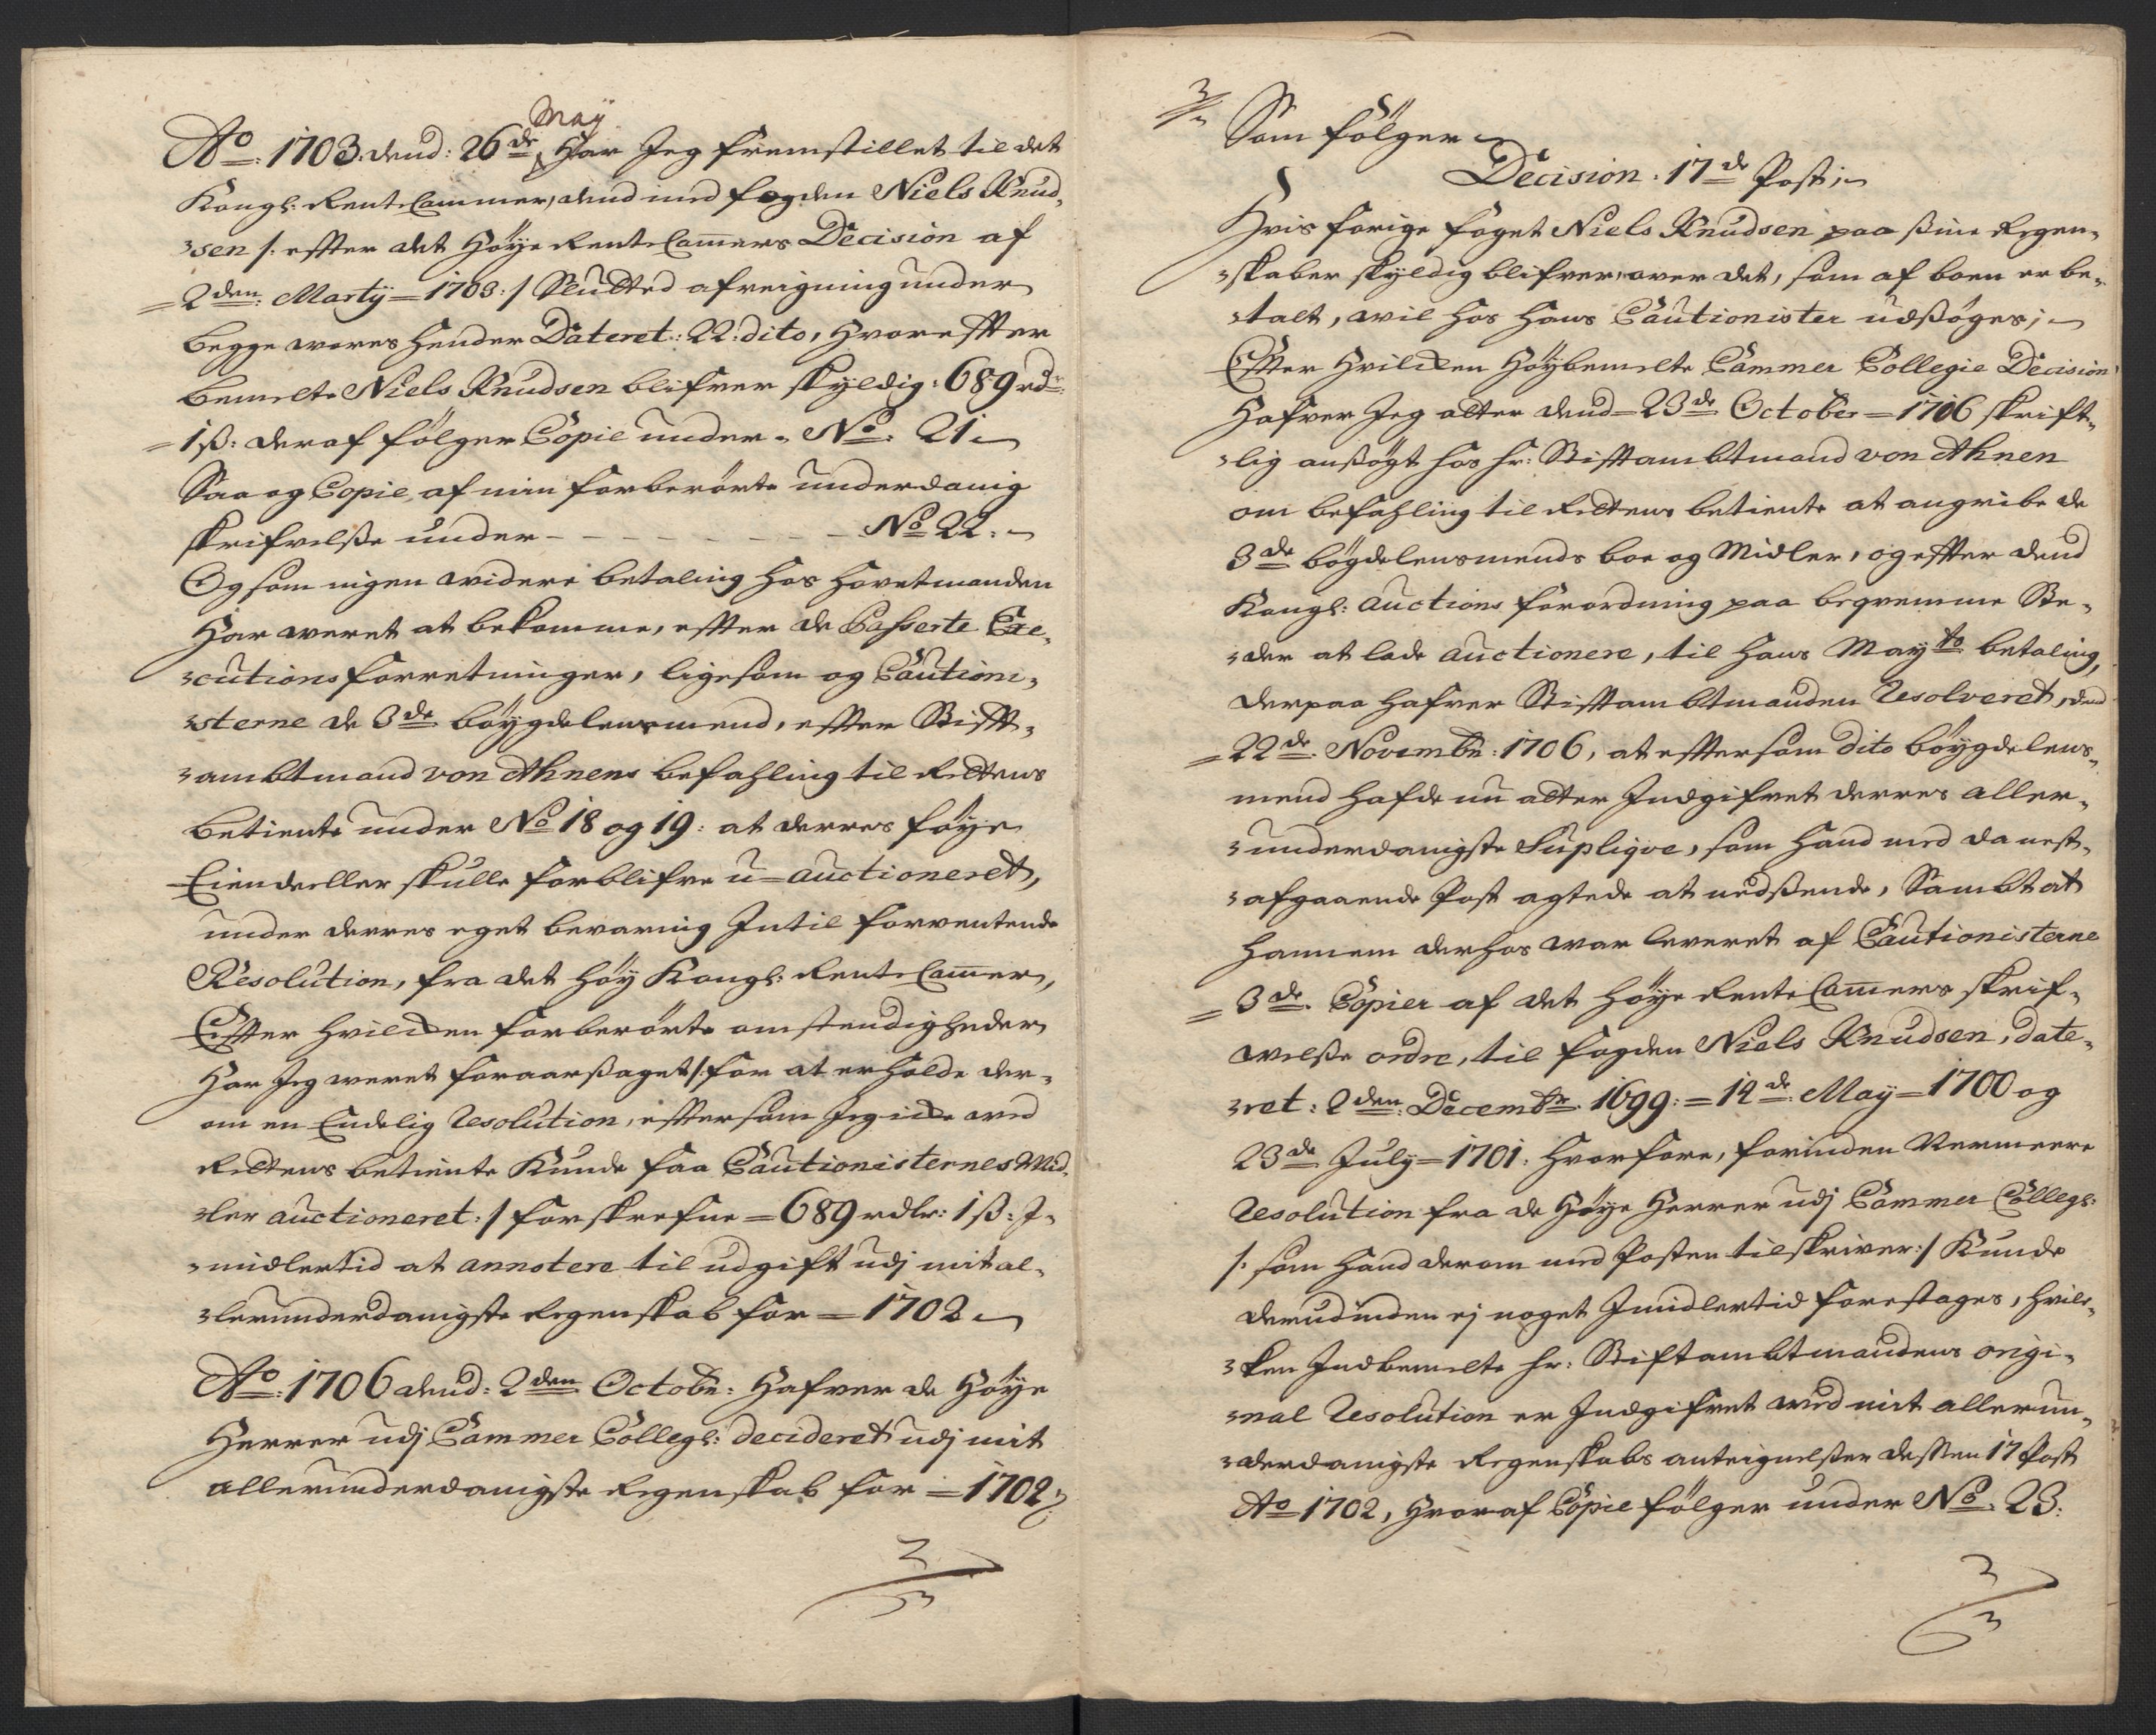 May
Ao: 1703. dend: 26de Har Jeg fremstillet til det
Kongl: Rente Cammer, dend med fogden Niels Knud„
„sen /: effter det Høye Rente Cam̄ers Decision af
= 2den: Marty = 1703: / Slutted afreigning under
begge wores hender Dateret: 22: dito, Hvoreffter
bemelte Niels Knudsen blifver skyldig: 689 rdr:
= 1 ß: deraf følger Copie under = No: 21
Saa og Copie, af min forberørte underdanig
skrifvelße under - - - - - - - - No 22:
Og som ingen widere betaling hos Hovetmanden
Har weret at bekomme, effter de Passerte Exe„
„cutions forretninger, ligesom og Cautioni„
„sterne de 3de bøygdelensmend, effter Stifft„
„ambtmand von Ahnens befahling til Rettens
betiente under No 18 og 19: at derres føye
Eiendeeller skulle forblifve u=auctioneret,
under derres eget bevaring Intil forventende
Resolution, fra det høy Kongl: Rente Cam̄er,
Effter hvilcken forberørte omstendigheder,
Har Jeg weret foraarßaget /: for at erholde der„
om en Endelig Resolution, efftersom Jeg icke wed
Rettens betiente Kunde faa Cautionisternes Mid„
„ler auctioneret: / forskrefne = 689 rdlr: 1 ß: I„
„midlertid at annotere til udgift udj mit al„
„lerunderdanigste Regenskab for = 1702
Ao: 1706 dend: 2den Octobr: Hafver de Høye
Herrer udj Cammer Collegl: decideret udj mit
allerunderdanigste Regenskab for = 1702;
Som følger
Decision. 17de Post;
Hvis forige foget Niels Knudsen paa ßine Regen„
„skaber skyldig blifver, over det, som af boen er be„
„talt, wil hos hans Cautionister udßøges;
Effter Hvilcken Høybemelte Cammer Collegie Decision
Hafver Jeg atter dend = 23de October = 1706 skrift„
„lig anßøgt hos hr: Stiftambtmand von Ahnen
om befahling til Rettens betiente at angribe de
3de bøgdelensmends boe og Midler, og effter dend
Kongl: auctions forordning paa beqvemme Ste„
„der at lade auctionere, til hans Mayts betaling,
derpaa hafver Stiftambtmanden Resolveret, dend
= 22de Novembr: 1706, at efftersom dito bøygdelens„
mend hafde nu atter Indgifvet derres aller„
„underdanigste Supliqve, som hand med da nest„
„afgaaende Post agtede at nedßende, Sambt at
hannem derhos war leveret af Cautionisterne
= 3de Copier af det høye Rente Cam̄ers skrif„
welße ordre, til fogden Niels Knudsen, date„
„ret: 2den: Decembr: 1699: = 14de: May = 1700 og
23de July = 1701: hvorfore, forinden Nermeere
Resolution fra de Høye Herrer udj Cammer Collegl:
/: som hand derom med Posten tilskriver: / Kunde
derudinden ej noget Imidlertid foretages, hvil„
„ken Indbemelte hr: Stiftambtmandens origi„
„nal Resolution er Indgifvet wed mit allerun„
„derdanigste Regenskabs anteignelßer dessen 17 Post
Ao 1702, Hvoraf Copie følger under No: 23: